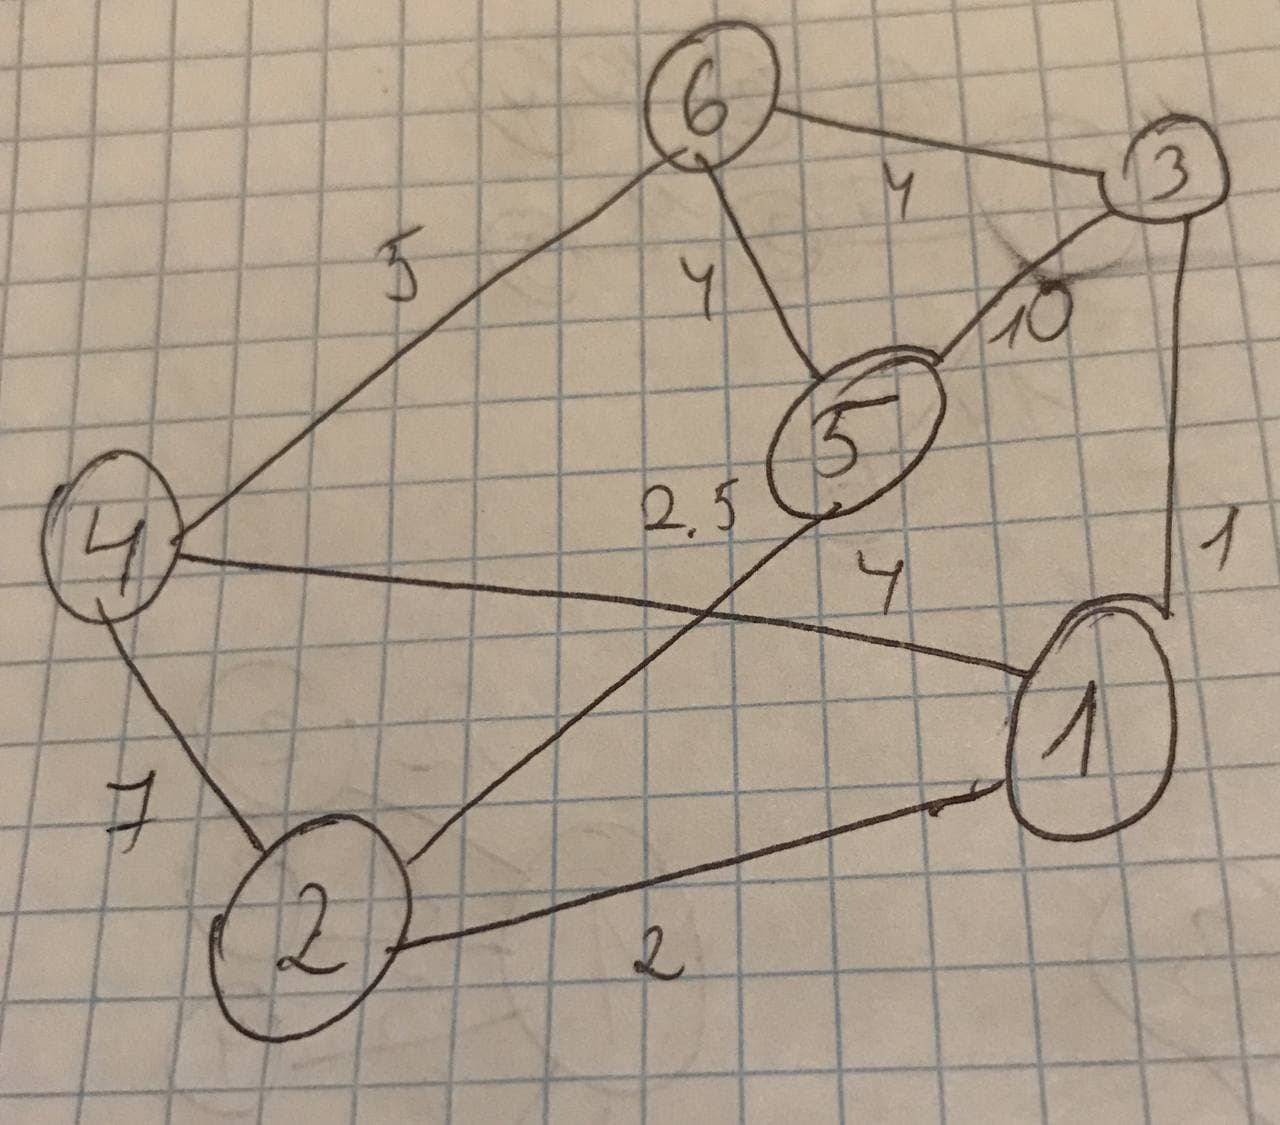 6
3
4
5
4
10
5
4
2.5
4
1
1
7
2
2